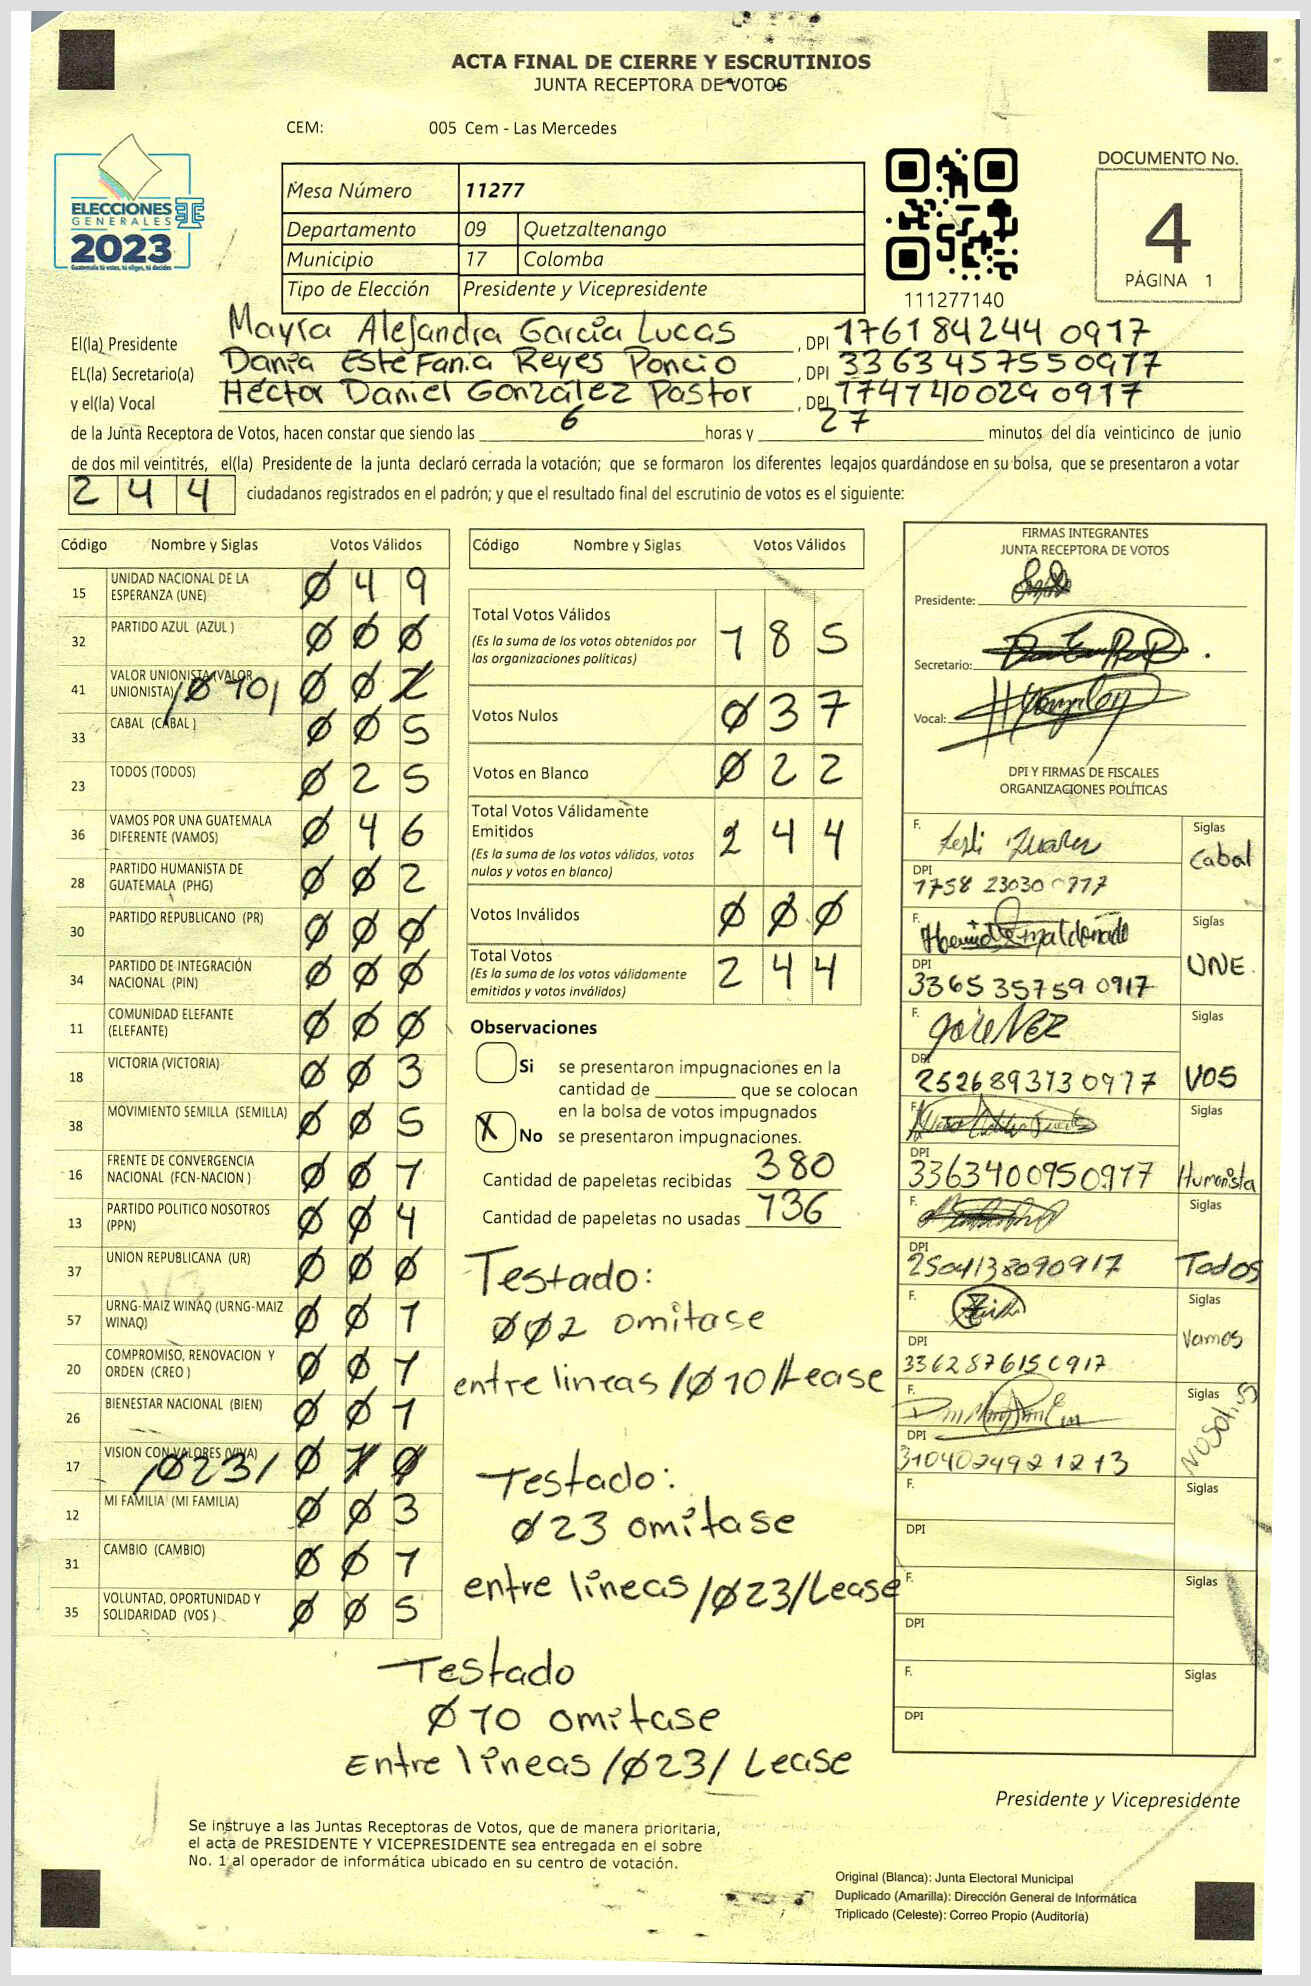 ACTA FINAL DE CIERRE Y ESCRUTINIOS
JUNTA RECEPTORA DE VOTOS
CEM: 005 Cem - Las Mercedes
ELECCIONES
GENERALES
2023
Guatemala tú votas, tú eliges, tú decides
Mesa Número 11277
Departamento 09 Quetzaltenango
Municipio 17 Colomba
Tipo de Elección Presidente y Vicepresidente
111277140
DOCUMENTO No.
4
PÁGINA 1
El(la) Presidente Mayra Alejandra García Lucas , DPI 1761842440917
EL(la) Secretario(a) Dania Estefania Reyes Poncio , DPI 3363457550917
y el(la) Vocal Héctor Daniel González Pastor , DPI 1747400290917
de la Junta Receptora de Votos, hacen constar que siendo las 6 horas y 27 minutos del día veinticinco de junio
de dos mil veintitrés, el(la) Presidente de la junta declaró cerrada la votación; que se formaron los diferentes legajos guardándose en su bolsa, que se presentaron a votar
244 ciudadanos registrados en el padrón; y que el resultado final del escrutinio de votos es el siguiente:
Código Nombre y Siglas Votos Válidos
15 UNIDAD NACIONAL DE LA ESPERANZA (UNE) 049
32 PARTIDO AZUL (AZUL ) 000
41 VALOR UNIONISTA (VALOR UNIONISTA) /010/ 002
33 CABAL (CABAL ) 005
23 TODOS (TODOS) 025
36 VAMOS POR UNA GUATEMALA DIFERENTE (VAMOS) 046
28 PARTIDO HUMANISTA DE GUATEMALA (PHG) 002
30 PARTIDO REPUBLICANO (PR) 000
34 PARTIDO DE INTEGRACIÓN NACIONAL (PIN) 000
11 COMUNIDAD ELEFANTE (ELEFANTE) 000
18 VICTORIA (VICTORIA) 003
38 MOVIMIENTO SEMILLA (SEMILLA) 005
16 FRENTE DE CONVERGENCIA NACIONAL (FCN-NACION ) 001
13 PARTIDO POLITICO NOSOTROS (PPN) 004
37 UNION REPUBLICANA (UR) 000
57 URNG-MAIZ WINAQ (URNG-MAIZ WINAQ) 001
20 COMPROMISO, RENOVACION Y ORDEN (CREO ) 001
26 BIENESTAR NACIONAL (BIEN) 001
17 VISION CON VALORES (VIVA) /023/ 010
12 MI FAMILIA (MI FAMILIA) 003
31 CAMBIO (CAMBIO) 001
35 VOLUNTAD, OPORTUNIDAD Y SOLIDARIDAD (VOS ) 005
Código Nombre y Siglas Votos Válidos
Total Votos Válidos 185
(Es la suma de los votos obtenidos por
las organizaciones políticas)
Votos Nulos 037
Votos en Blanco 022
Total Votos Válidamente
Emitidos 244
(Es la suma de los votos válidos, votos
nulos y votos en blanco)
Votos Inválidos 000
Total Votos 244
(Es la suma de los votos válidamente
emitidos y votos inválidos)
Observaciones
Si se presentaron impugnaciones en la
cantidad de ________ que se colocan
en la bolsa de votos impugnados
X No se presentaron impugnaciones.
Cantidad de papeletas recibidas 380
Cantidad de papeletas no usadas 136
Testado:
002 omitase
entre lineas /010/ Lease
Testado:
023 omitase
entre líneas /023/ Lease
Testado
010 omitase
Entre líneas /023/ Lease
FIRMAS INTEGRANTES
JUNTA RECEPTORA DE VOTOS
Presidente:
Secretario:
Vocal:
DPI Y FIRMAS DE FISCALES
ORGANIZACIONES POLÍTICAS
F. Siglas
Cabal
DPI
F. Siglas
UNE
DPI 3365357590917
F. Siglas
VOS
DPI 2526893730917
F. Siglas
Humanista
DPI 3363400950917
F. Siglas
Todos
DPI 2504138090917
F. Siglas
Vamos
DPI 3362876150917
F. Siglas
Nosotros
DPI 3104024921213
F. Siglas
DPI
F. Siglas
DPI
F. Siglas
DPI
Presidente y Vicepresidente
Se instruye a las Juntas Receptoras de Votos, que de manera prioritaria,
el acta de PRESIDENTE Y VICEPRESIDENTE sea entregada en el sobre
No. 1 al operador de informática ubicado en su centro de votación.
Original (Blanca): Junta Electoral Municipal
Duplicado (Amarilla): Dirección General de Informática
Triplicado (Celeste): Correo Propio (Auditoría)